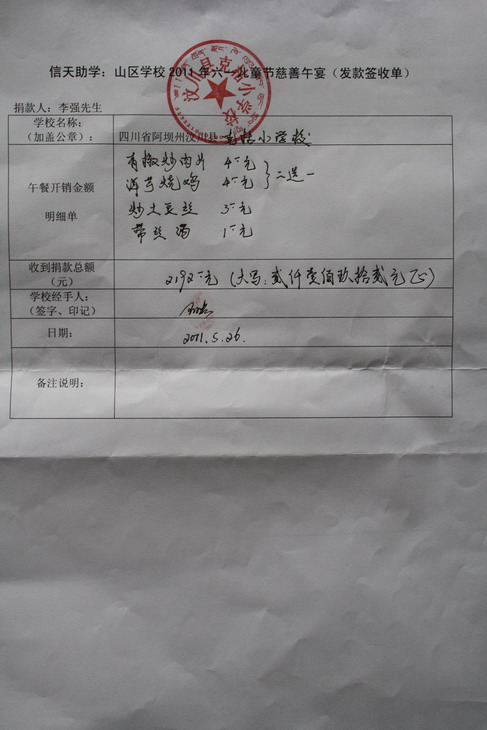 信天助学：山区学校2011年六一儿童节慈善午宴（发款签收单）
汶川县克枯小学校
捐款人：李强先生
学校名称：
（加盖公章）：
四川省阿坝州汶川县克枯小学校
午餐开销金额
明细单
青椒炒肉片 4.00元
洋芋烧鸡 4.00元
二选一
炒土豆丝 3.00元
带丝汤 1.00元
收到捐款总额
（元）
2192.00元（大写：贰仟壹佰玖拾贰元正）
学校经手人：
（签字、印记）
日期：
2011.5.26.
备注说明：